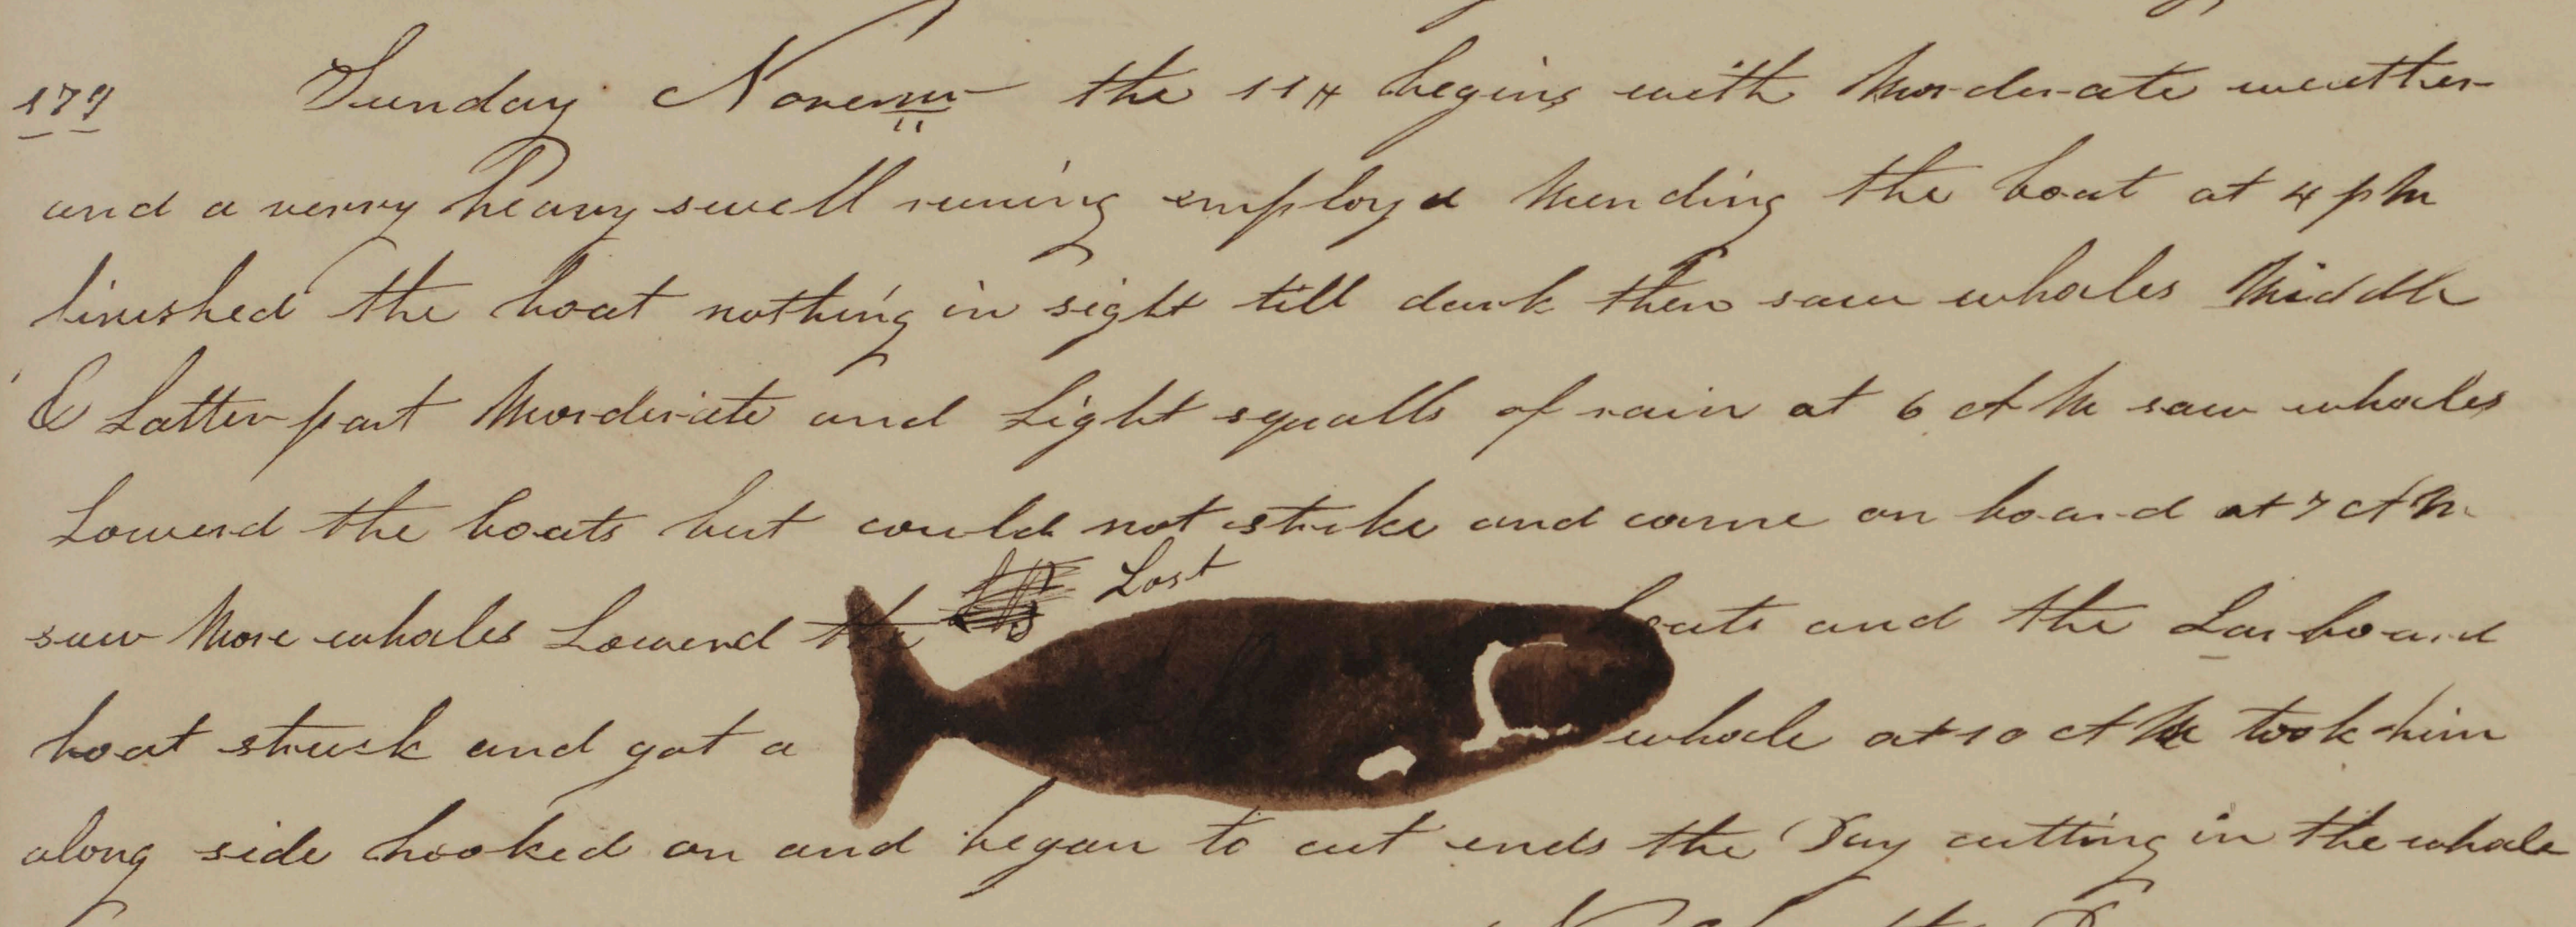 179 Sunday Novem the 11th begins with Morderate weather
and a verry heavy swell runing employd Mending the boat at 4 p M
finished the boat nothing in sight till dark then saw whales Middle
& Latter part Morderate and Light squalls of rain at 6 A M saw whales
Lowerd the boats but could not strike and came on board at 7 A M
Lost
saw More whales Lowerd the boats and the Larboard
boat struck and got a whale at 10 A M took him
along side hooked on and began to cut ends the Day cutting in the whale